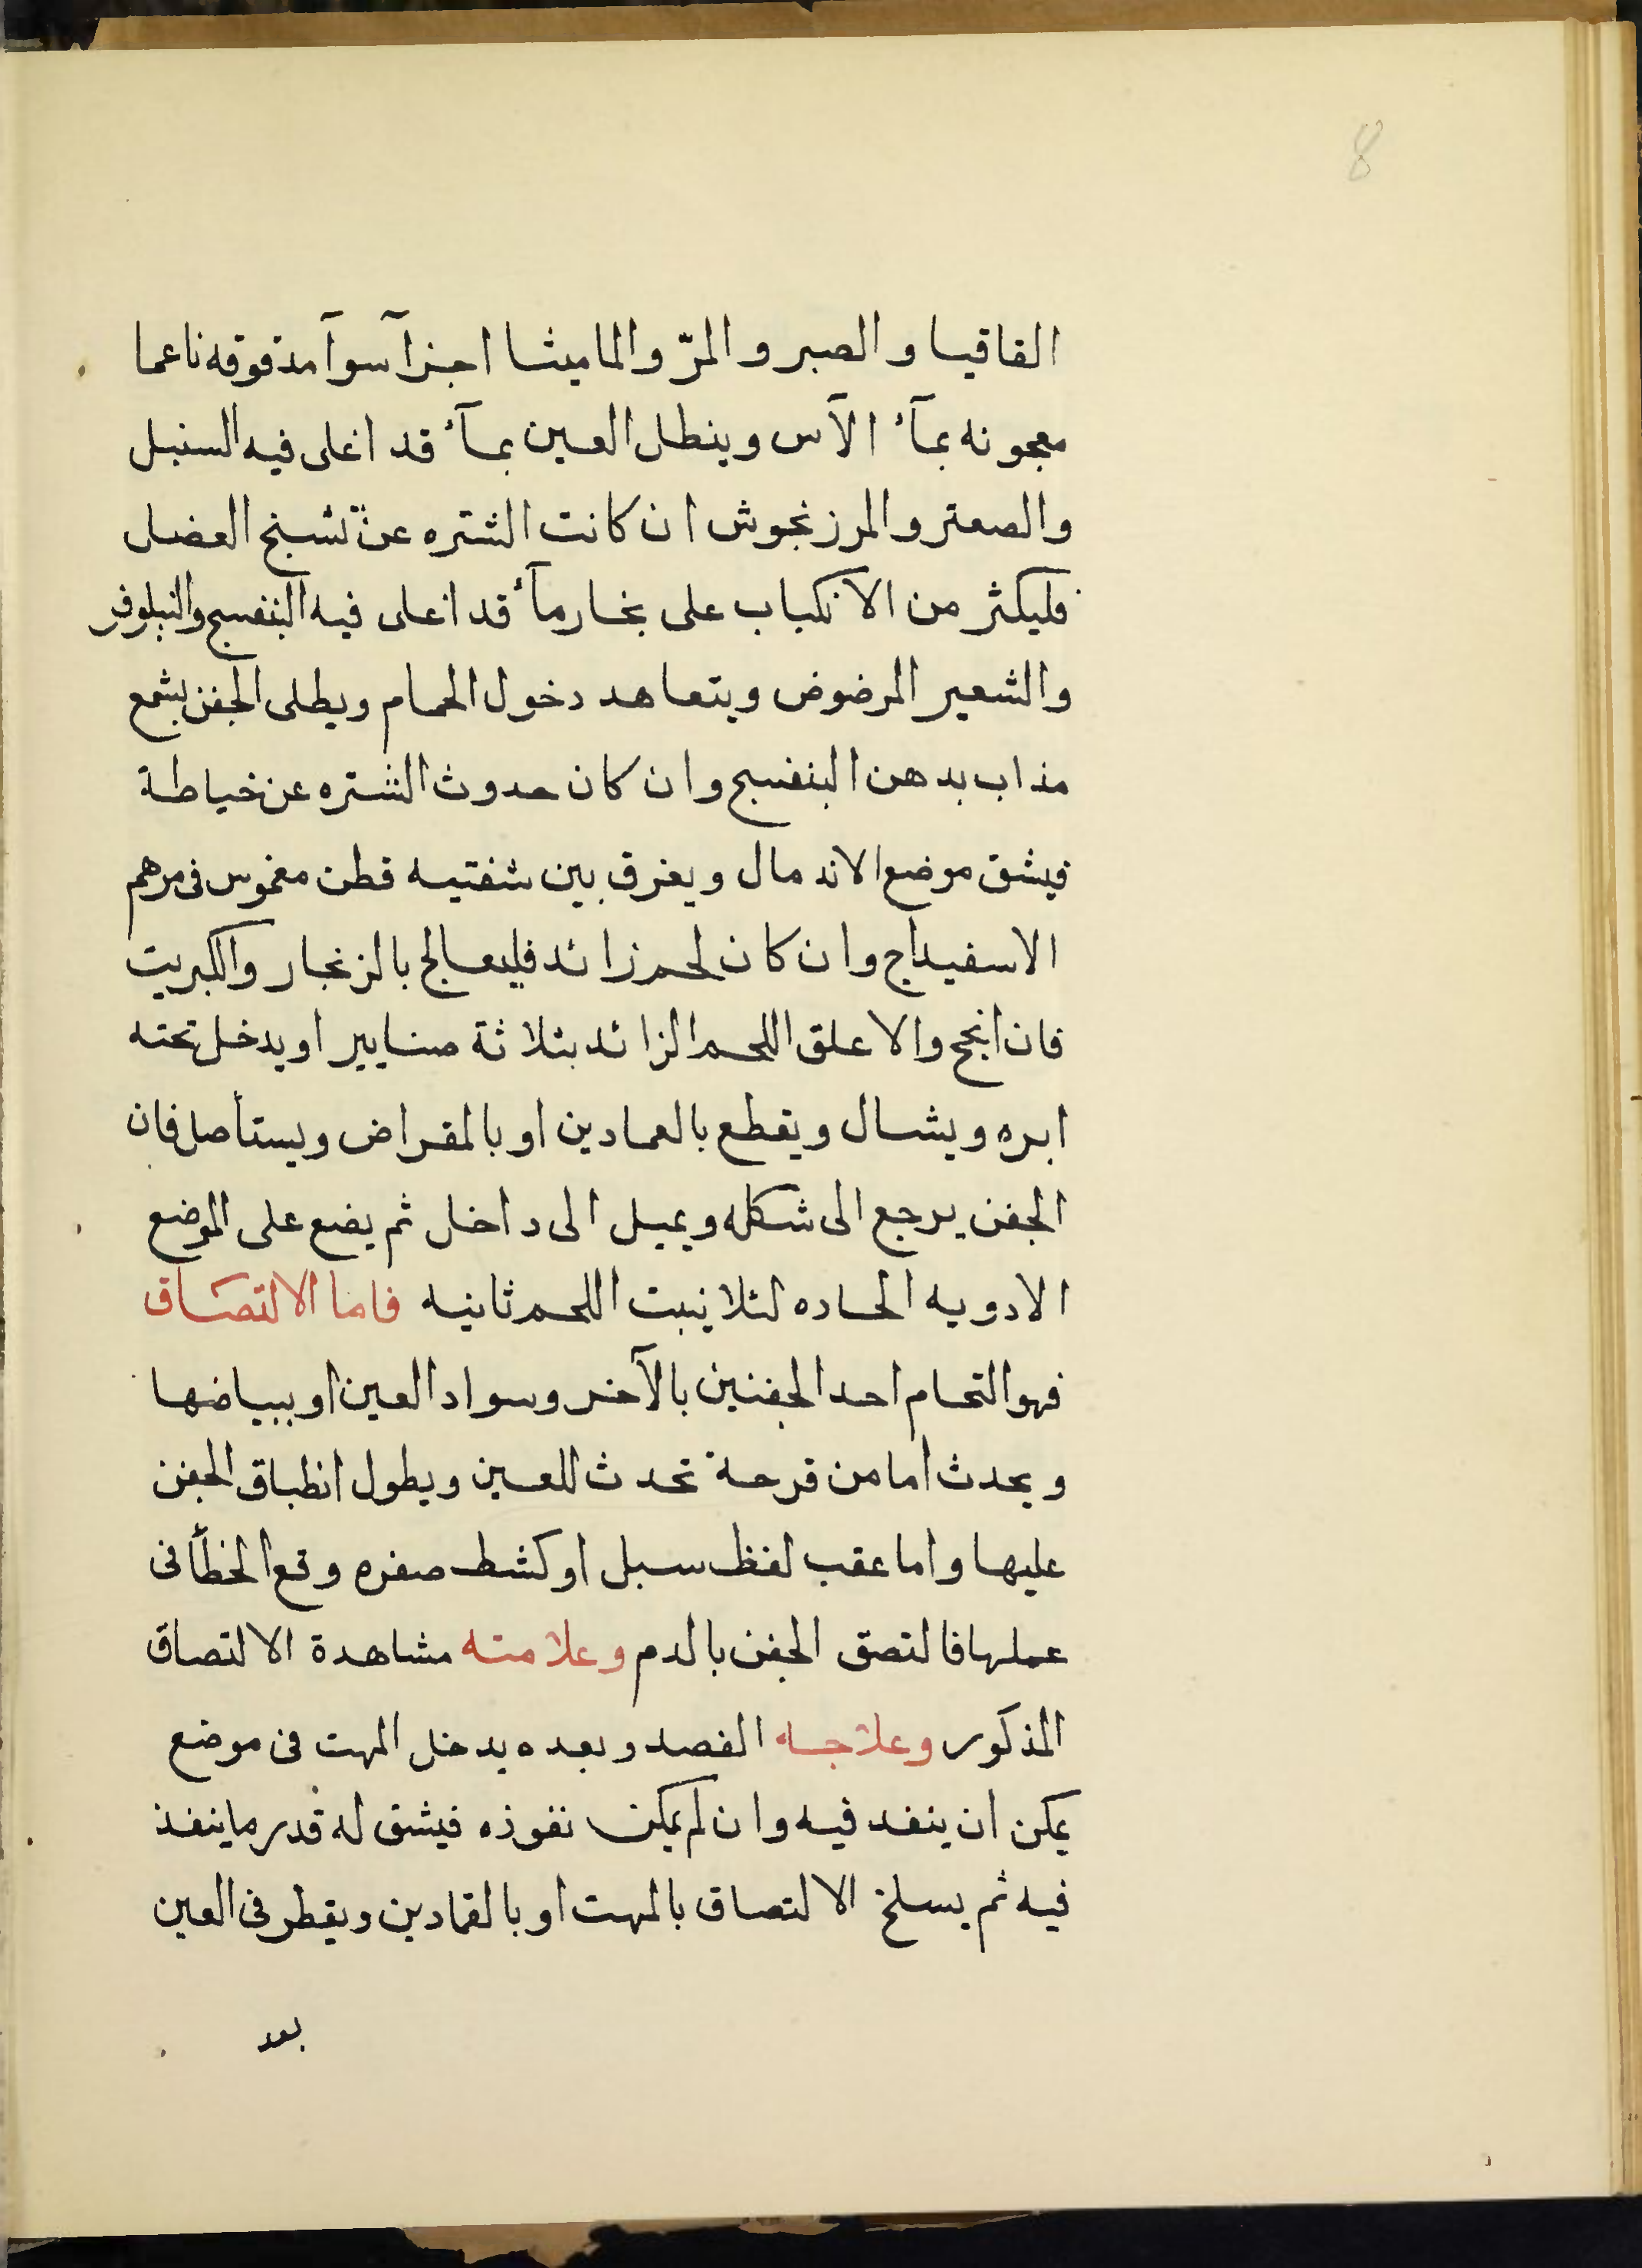 8
القاقيا والصبر والمرّ والماميثا اجزآ سوآ مدقوقه ناعما
معجونه بمآء الآس وينطل العين بمآء قد اغلى فيه السنبل
والصعتر والمرزنجوش ان كانت الشتره عن تشنج العضل
فليكثر من الانكباب على بخار مآء قد اغلى فيه البنفسج والنيلوفر
والشعير المرضوض ويتعاهد دخول الحمام ويطلى الجفن بشمع
مذاب بدهن البنفسج وان كان حدوث الشتره عن خياطة
فيشق موضع الاندمال ويفرق بين شفتيه قطن مغموس فى مرهم
الاسفيداج وان كان لحم زائد فليعالج بالزنجار والكبريت
فان انجح والا علق اللحم الزائد بثلاثة صنايير او يدخل تحته
ابره ويشال ويقطع بالعمادين او بالمقراض ويستأصل فان
الجفن يرجع الى شكله ويميل الى داخل ثم يضع على الموضع
الادويه الحاده لئلا ينبت اللحم ثانيه فاما الالتصاق
فهو التحام احد الجفنين بالآخر وسواد العين او ببياضها
ويحدث اما من قرحة تحدث للعين ويطول انطباق الجفن
عليها واما عقب لفظ سبل او كشط صفره وقع الخطأ فى
عملها فالتصق الجفن بالدم وعلامته مشاهدة الالتصاق
المذكور وعلاجه الفصد وبعده يدخل المهت فى موضع
يمكن ان ينفد فيه وان لم يمكن نفوذه فيشق له قدر ما ينفذ
فيه ثم يسلخ الالتصاق بالمهت او بالقمادين ويقطر فى العين
بعد